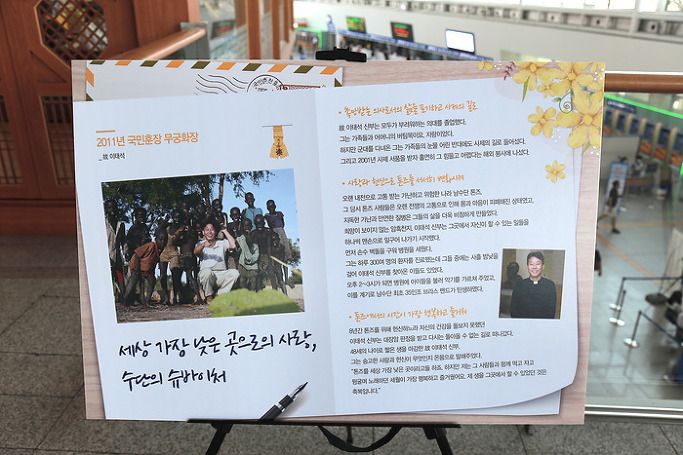 2011년 국민훈장 무궁화장
_ 故 이태석
세상 가장 낮은 곳으로의 사랑,
수단의 슈바이처
• 촉망받는 의사로서의 삶을 포기하고 사제의 길로
故 이태석 신부는 모두가 부러워하는 의대를 졸업했다.
그는 가족들과 어머니의 버팀목이요, 자랑이었다.
하지만 군대를 다녀온 그는 가족들의 눈물 어린 반대에도 사제의 길로 들어섰다.
그리고 2001년 사제 서품을 받자 홀연히 그 힘들고 어렵다는 해외 봉사에 나섰다.
• 사랑과 헌신으로 톤즈를 서서히 변화시켜
오랜 내전으로 고통 받는 가난하고 위험한 나라 남수단 톤즈.
그 당시 톤즈 사람들은 오랜 전쟁의 고통으로 인해 몸과 마음이 피폐해진 상태였고,
지독한 가난과 만연한 질병은 그들의 삶을 더욱 비참하게 만들었다.
희망이 보이지 않는 암흑천지. 이태석 신부는 그곳에서 자신이 할 수 있는 일들을
하나씩 맨손으로 일구어 나가기 시작했다.
먼저 손수 벽돌을 구워 병원을 세웠다.
그는 하루 300여 명의 환자를 진료했는데 그들 중에는 사흘 밤낮을
걸어 이태석 신부를 찾아온 이들도 있었다.
오후 2~3시가 되면 병원에 아이들을 불러 악기를 가르쳐 주었고,
이를 계기로 남수단 최초 35인조 브라스 밴드가 탄생하였다.
• 톤즈에서의 시간이 가장 행복하고 즐거워
8년간 톤즈를 위해 헌신하느라 자신의 건강을 돌보지 못했던
이태석 신부는 대장암 판정을 받고 다시는 돌아올 수 없는 길로 떠나갔다.
48세의 나이로 짧은 생을 마감한 故 이태석 신부.
그는 숭고한 사랑과 헌신이 무엇인지 온몸으로 말해주었다.
"톤즈를 세상 가장 낮은 곳이라고들 하죠. 하지만 제는 그 사람들과 함께 먹고 자고
뒹굴며 노래하던 세월이 가장 행복하고 즐거웠어요. 제 생을 그곳에서 할 수 있었던 것은
축복입니다."